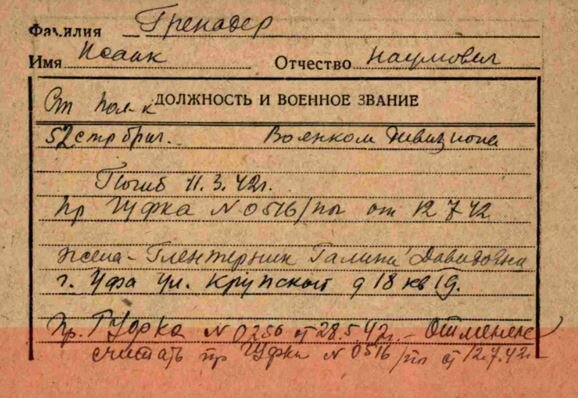 Фамилия Гренадер
Имя Исаак Отчество Наумович
Ст полк ДОЛЖНОСТЬ И ВОЕННОЕ ЗВАНИЕ
52 стр бриг. Военком дивизиона
Погиб 11.3.42г.
Пр ГУФКА N 0516/пог от 12 7 42
жена - Глентерник Галина Давидовна
г. Уфа ул. Крупской д 18 кв 19.
Пр. ГУФКА N 0256 от 28.5.42г. - Отменен
считать пр ГУФКА N 0516/по от 12.7.42г.